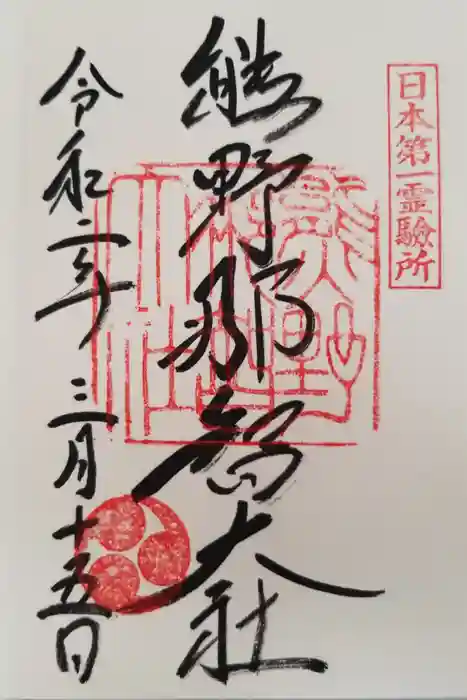 日本第一霊験所
熊野那智大社
令和二年三月十五日